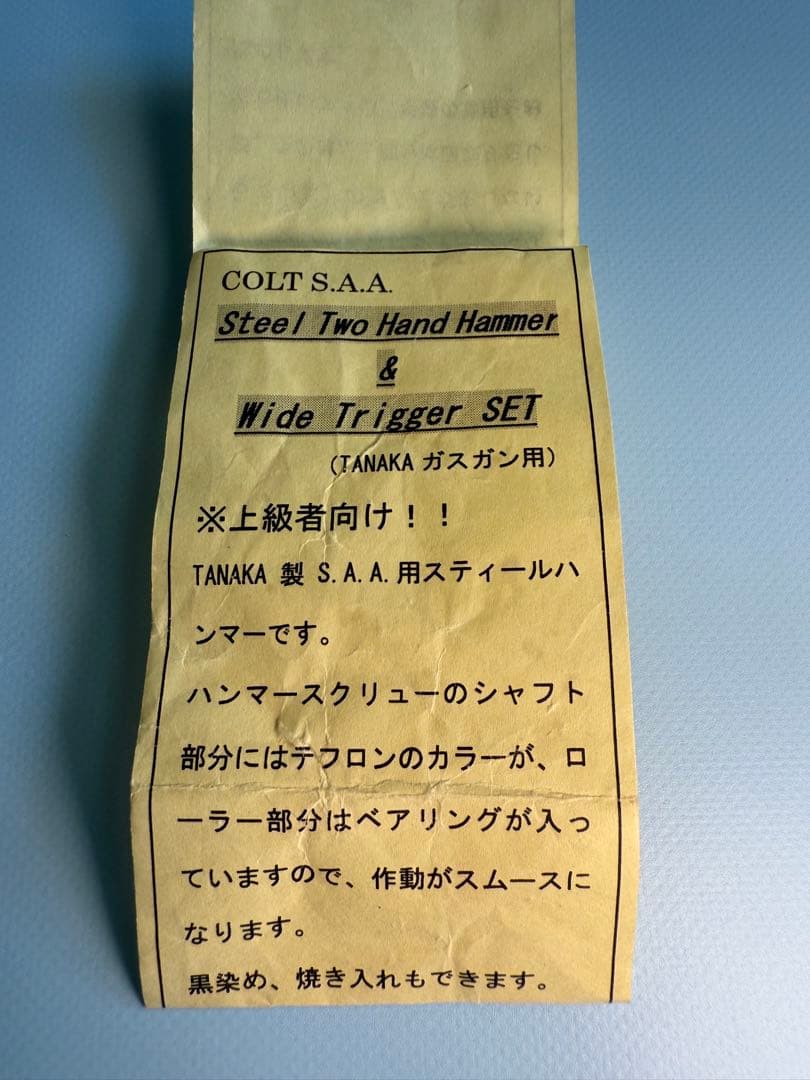 COLT S.A.A.
Steel Two Hand Hammer
&
Wide Trigger SET
(TANAKA ガスガン用)
※上級者向け！！
TANAKA 製 S.A.A.用スティールハ
ンマーです。
ハンマースクリューのシャフト
部分にはテフロンのカラーが、ロ
ーラー部分はベアリングが入っ
ていますので、作動がスムースに
なります。
黒染め、焼き入れもできます。